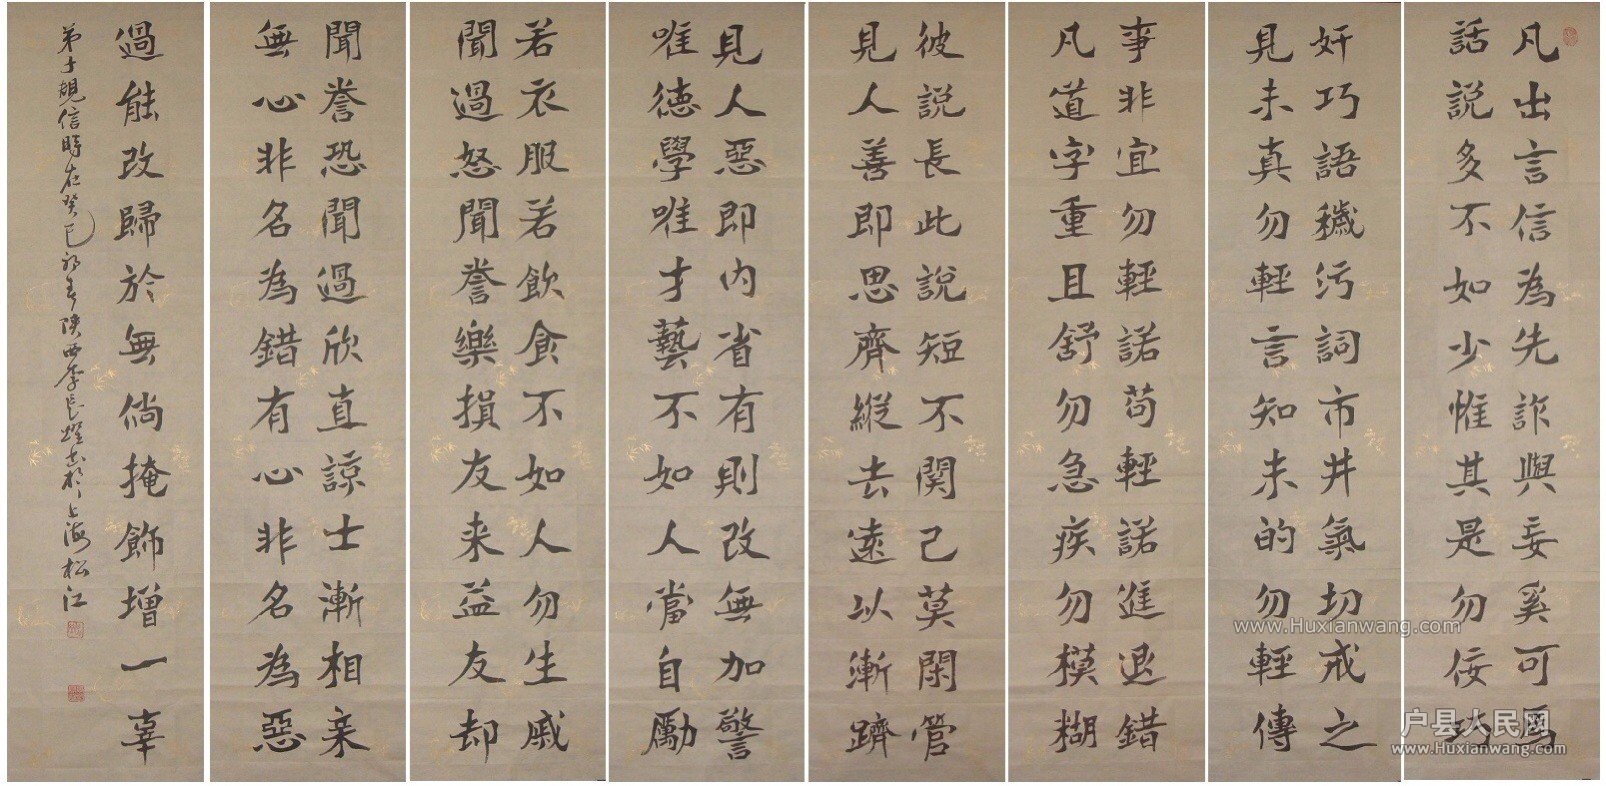 凡出言信為先詐與妄奚可焉
話說多不如少惟其是勿佞巧
奸巧語穢污詞市井氣切戒之
見未真勿輕言知未的勿輕傳
事非宜勿輕諾苟輕諾進退錯
凡道字重且舒勿急疾勿模糊
彼說長此說短不関己莫閑管
見人善即思齊縱去遠以漸躋
見人惡即內省有則改無加警
唯德學唯才藝不如人當自勵
若衣服若飲食不如人勿生戚
聞過怒聞譽樂損友来益友却
聞譽恐聞過欣直諒士漸相亲
無心非名為錯有心非名為惡
過能改歸於無倘掩飾增一辜
弟子規信時在癸巳初春陝西李長燿書於上海松江
www.Huxianwang.com
户县人民网
www.Huxianwang.com